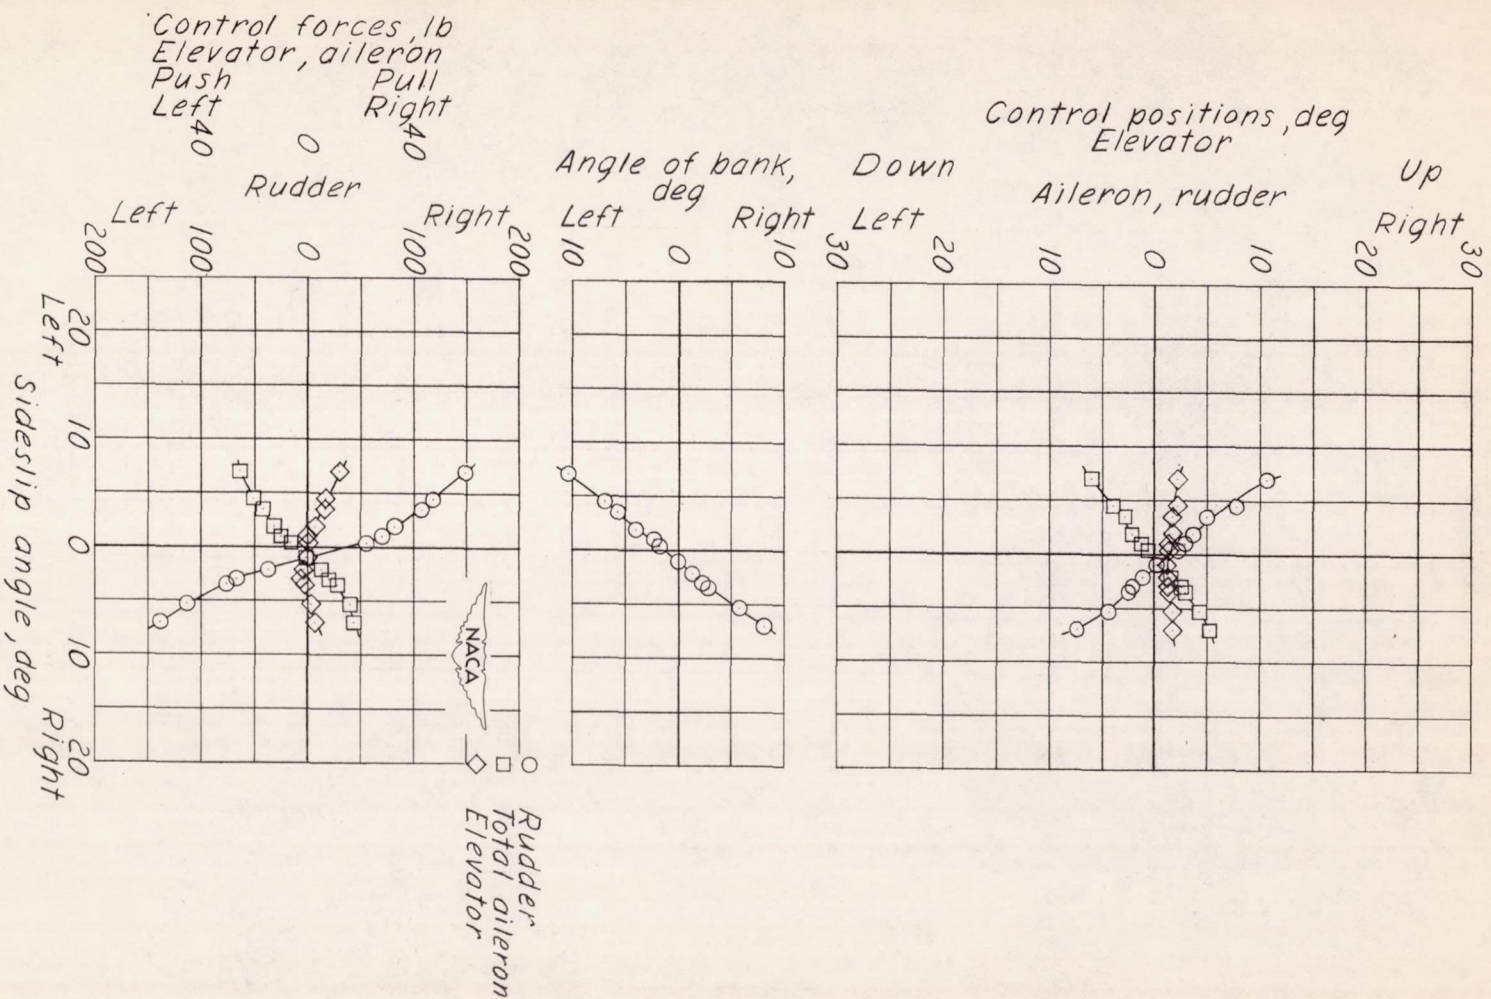 Control forces, lb
Elevator, aileron
Push Pull
Left Right
40 0 40
Rudder
Left Right
200 100 0 100 200
Angle of bank,
deg
Left Right
10 0 10
Control positions, deg
Elevator
Down Up
Aileron, rudder
Left Right
30 20 10 0 10 20 30
20 10 0 10 20
Left Right
Sideslip angle, deg
NACA
Rudder
Total aileron
Elevator